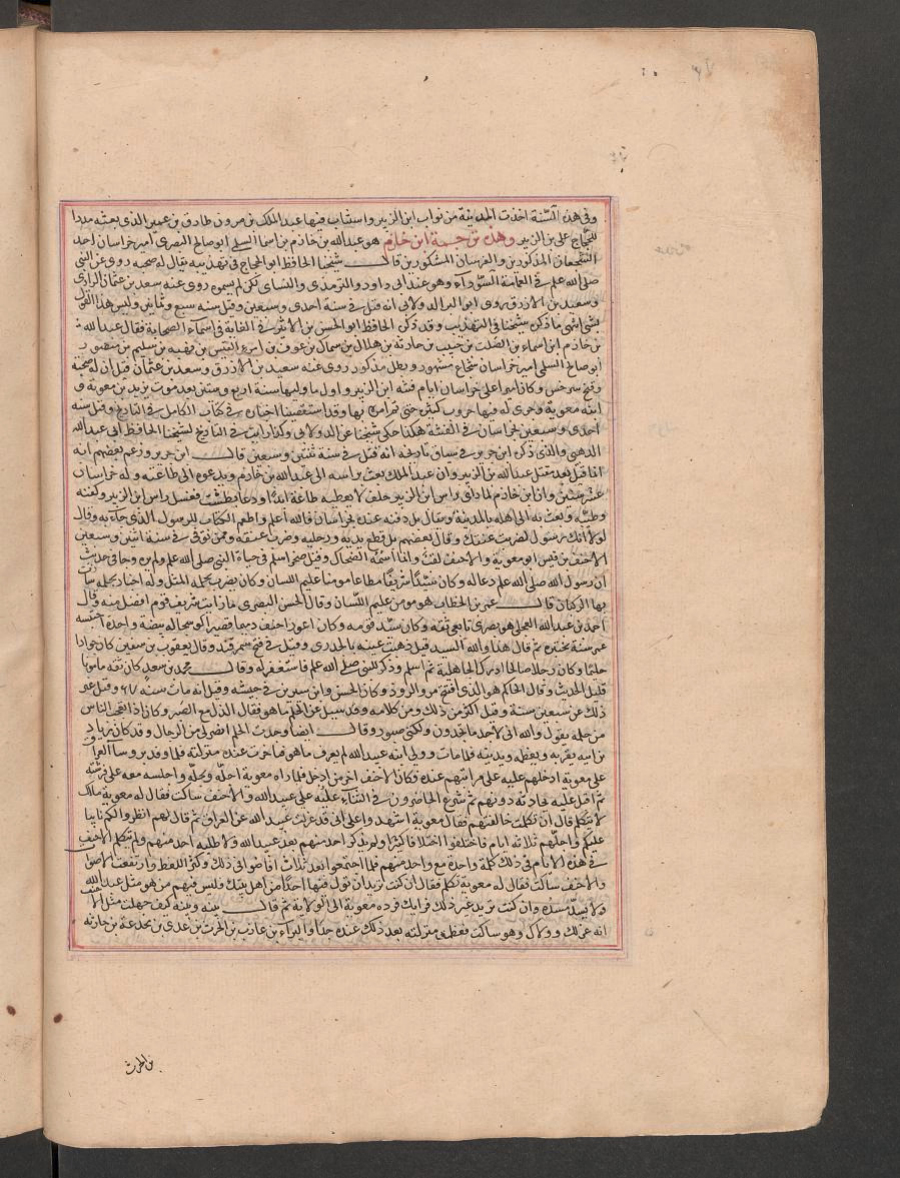 وفي هذه السنة اخذت المدينة من نواب ابن الزبير واستناب فيها عبد الملك بن مرون طارق بن عمير الذي بعثه مددا
للحجاج على بن الزبير وهذه ترجمة ابن خازم هو عبد الله بن خازم بن اسما السلمي ابو صالح البصري امير خراسان احد
الشجعان المذكورين والفرسان المشكورين قال شيخنا الحافظ ابو الحجاج في تهذيبه يقال له صحبه روى عن النبي
صلى الله علم في العمامة السوداء وهو عند ابي داود والترمذي والنساي لكن لم يسموه روى عنه سعد بن عثمان الرازي
وسعيد بن الازرق روى ابو البر الدولابي انه قتل في سنة احدى وسبعين وقتل سنه سبع وثمانين وليس هذا القول
بشي انتهى ما ذكره شيخنا في التهذيب وقد ذكره الحافظ ابو الحسن بن الاثير في الغابة في اسماء الصحابة فقال عبد الله
بن خازم ابن اسماء بن الصلت بن حبيب بن حارثه بن هلال بن سمال بن عوف بن امرء القيس بن بهيه بن سليم بن منصور
ابو صالح السلمي امير خراسان شجاع مشهور وبطل مذكور روى عنه سعيد بن الازرق وسعد بن عثمان قيل ان له صحبة
وفتح سرخس وكان اميرا على خراسان ايام فتنه ابن الزبير واول ما وليها سنة اربع وستين بعد موت يزيد بن معوية و
ابنه معوية وجرى له فيها حروب كثيرة حتى تم امره بها وقد استقصينا اخباره في كتاب الكامل في التاريخ وقتل سنه
احدى وسبعين بخراسان في الفتنة هكذا حكى شيخنا عن الدولابي وكذا رايت في التاريخ لشيخنا الحافظ ابي عبد الله
الذهبي والذي ذكره ابن جرير في سياق تاريخه انه قتل في سنه ثنتين وسبعين قال ابن جرير وزعم بعضهم انه
انما قتل بعد مقتل عبد الله بن الزبير وان عبد الملك بعث براسه الى عبد الله بن خازم ويدعوه الى طاعته وله خراسان
عشر سنين وان ابن خازم لما راى راس ابن الزبير حلف لا يعطيه طاعة ابدا ودعا بطشت فغسل راس ابن الزبير وكفنه
وطيبه وبعث به الى اهله بالمدينة ويقال بل دفنه عنده بخراسان فالله اعلم واطعم الكتاب للرسول الذي جاء به وقال
لولا انك رسول لضربت عنقك وقال بعضهم بل قطع يديه ورجليه وضرب عنقه وممن توفي في سنة اثنين وسبعين
الاحنف بن قيس ابو معوية والاحنف لقب وانما اسمه الضحاك وقيل صخر اسلم في حياة النبي صلى الله علم ولم يره وجا في حديث
ان رسول الله صلى الله علم دعا له وكان سيدا شريفا مطاعا مومنا عليم اللسان وكان يضرب بحلمه المثل وله اخبار بحلمه سارت
بها الركبان قال عمر بن الخطاب هو مومن عليم اللسان وقال الحسن البصري ما رايت شريف قوم افضل منه وقال
احمد بن عبد الله العجلي هو بصري تابعي ثقة وكان سيد قومه وكان اعور احنف دميما قصيرا كوسجا له بيضه واحدة احتبسه
عمر سنة يختبره ثم قال هذا والله السيد قيل ذهبت عينه بالجدري وقيل في فتح سمرقند وقال يعقوب بن سفين كان جوادا
حليما وكان رجلا صالحا ادرك الجاهلية ثم اسلم وذكر للنبي صلى الله علم فاستغفر له وقال محمد بن سعد كان ثقه مامونا
قليل الحديث وقال الحاكم هو الذي افتتح مرو الروذ وكان الحسن وابن سيرين في جيشه وقيل انه مات سنه ٦٧ وقيل غير
ذلك عن سبعين سنة وقيل اكثر من ذلك ومن كلامه وقد سيل عن الحلم ما هو فقال الذل مع الصبر وكان اذا تعجب الناس
من حلمه يقول والله اني لاجد ما تجدون ولكني صبور وقال ايضا وجدت الحلم انصر لي من الرجال وقد كان زياد
بن ابيه يقربه ويعظمه ويدنيه فلما مات وولى ابنه عبيد الله لم يعرف ما هو فتاخرت عنده منزلته فلما وفد بروسا العراق
على معوية ادخلهم عليه على مراتبهم عنده فكان الاحنف اخر من ادخل فلما راه معوية اجله وبجله واجلسه معه على فرشته
ثم اقبل عليه يحادثه دونهم ثم شرع الحاضرون في الثناء عليه على عبيد الله والاحنف ساكت فقال له معوية مالك
لا تتكلم قال ان تكلمت خالفتهم فقال معوية اشهدوا علي اني قد عزلت عبيد الله عن العراق ثم قال لهم انظروا لكم نايبا
عليكم واجلهم ثلاثه ايام فاختلفوا اختلافا كثيرا ولم يذكر احد منهم بعد عبيد الله ولا طلبه احد منهم ولم يتكلم الاحنف
في هذه الايام في ذلك كلمة واحدة مع واحد منهم فلما اجتمعوا بعد ثلاث افاضوا في ذلك وكثر اللغط وارتفعت الاصوات
والاحنف ساكت فقال له معوية تكلم فقال ان كنت تريد ان تولي فيها احدا من اهل بيتك وليس فيهم من هو مثل عبيد الله
ولا يسد مسده وان كنت تريد غير ذلك فرايك فرده معوية الى الولاية ثم قال بينه وبينه كيف جهلت مثل الاحنف
انه عزلك وولاك وهو ساكت فعظمت منزلته بعد ذلك عنده جدا والبراء بن عازب بن الحرث بن عدي بن مجدعة بن حارثه
بن الحرث